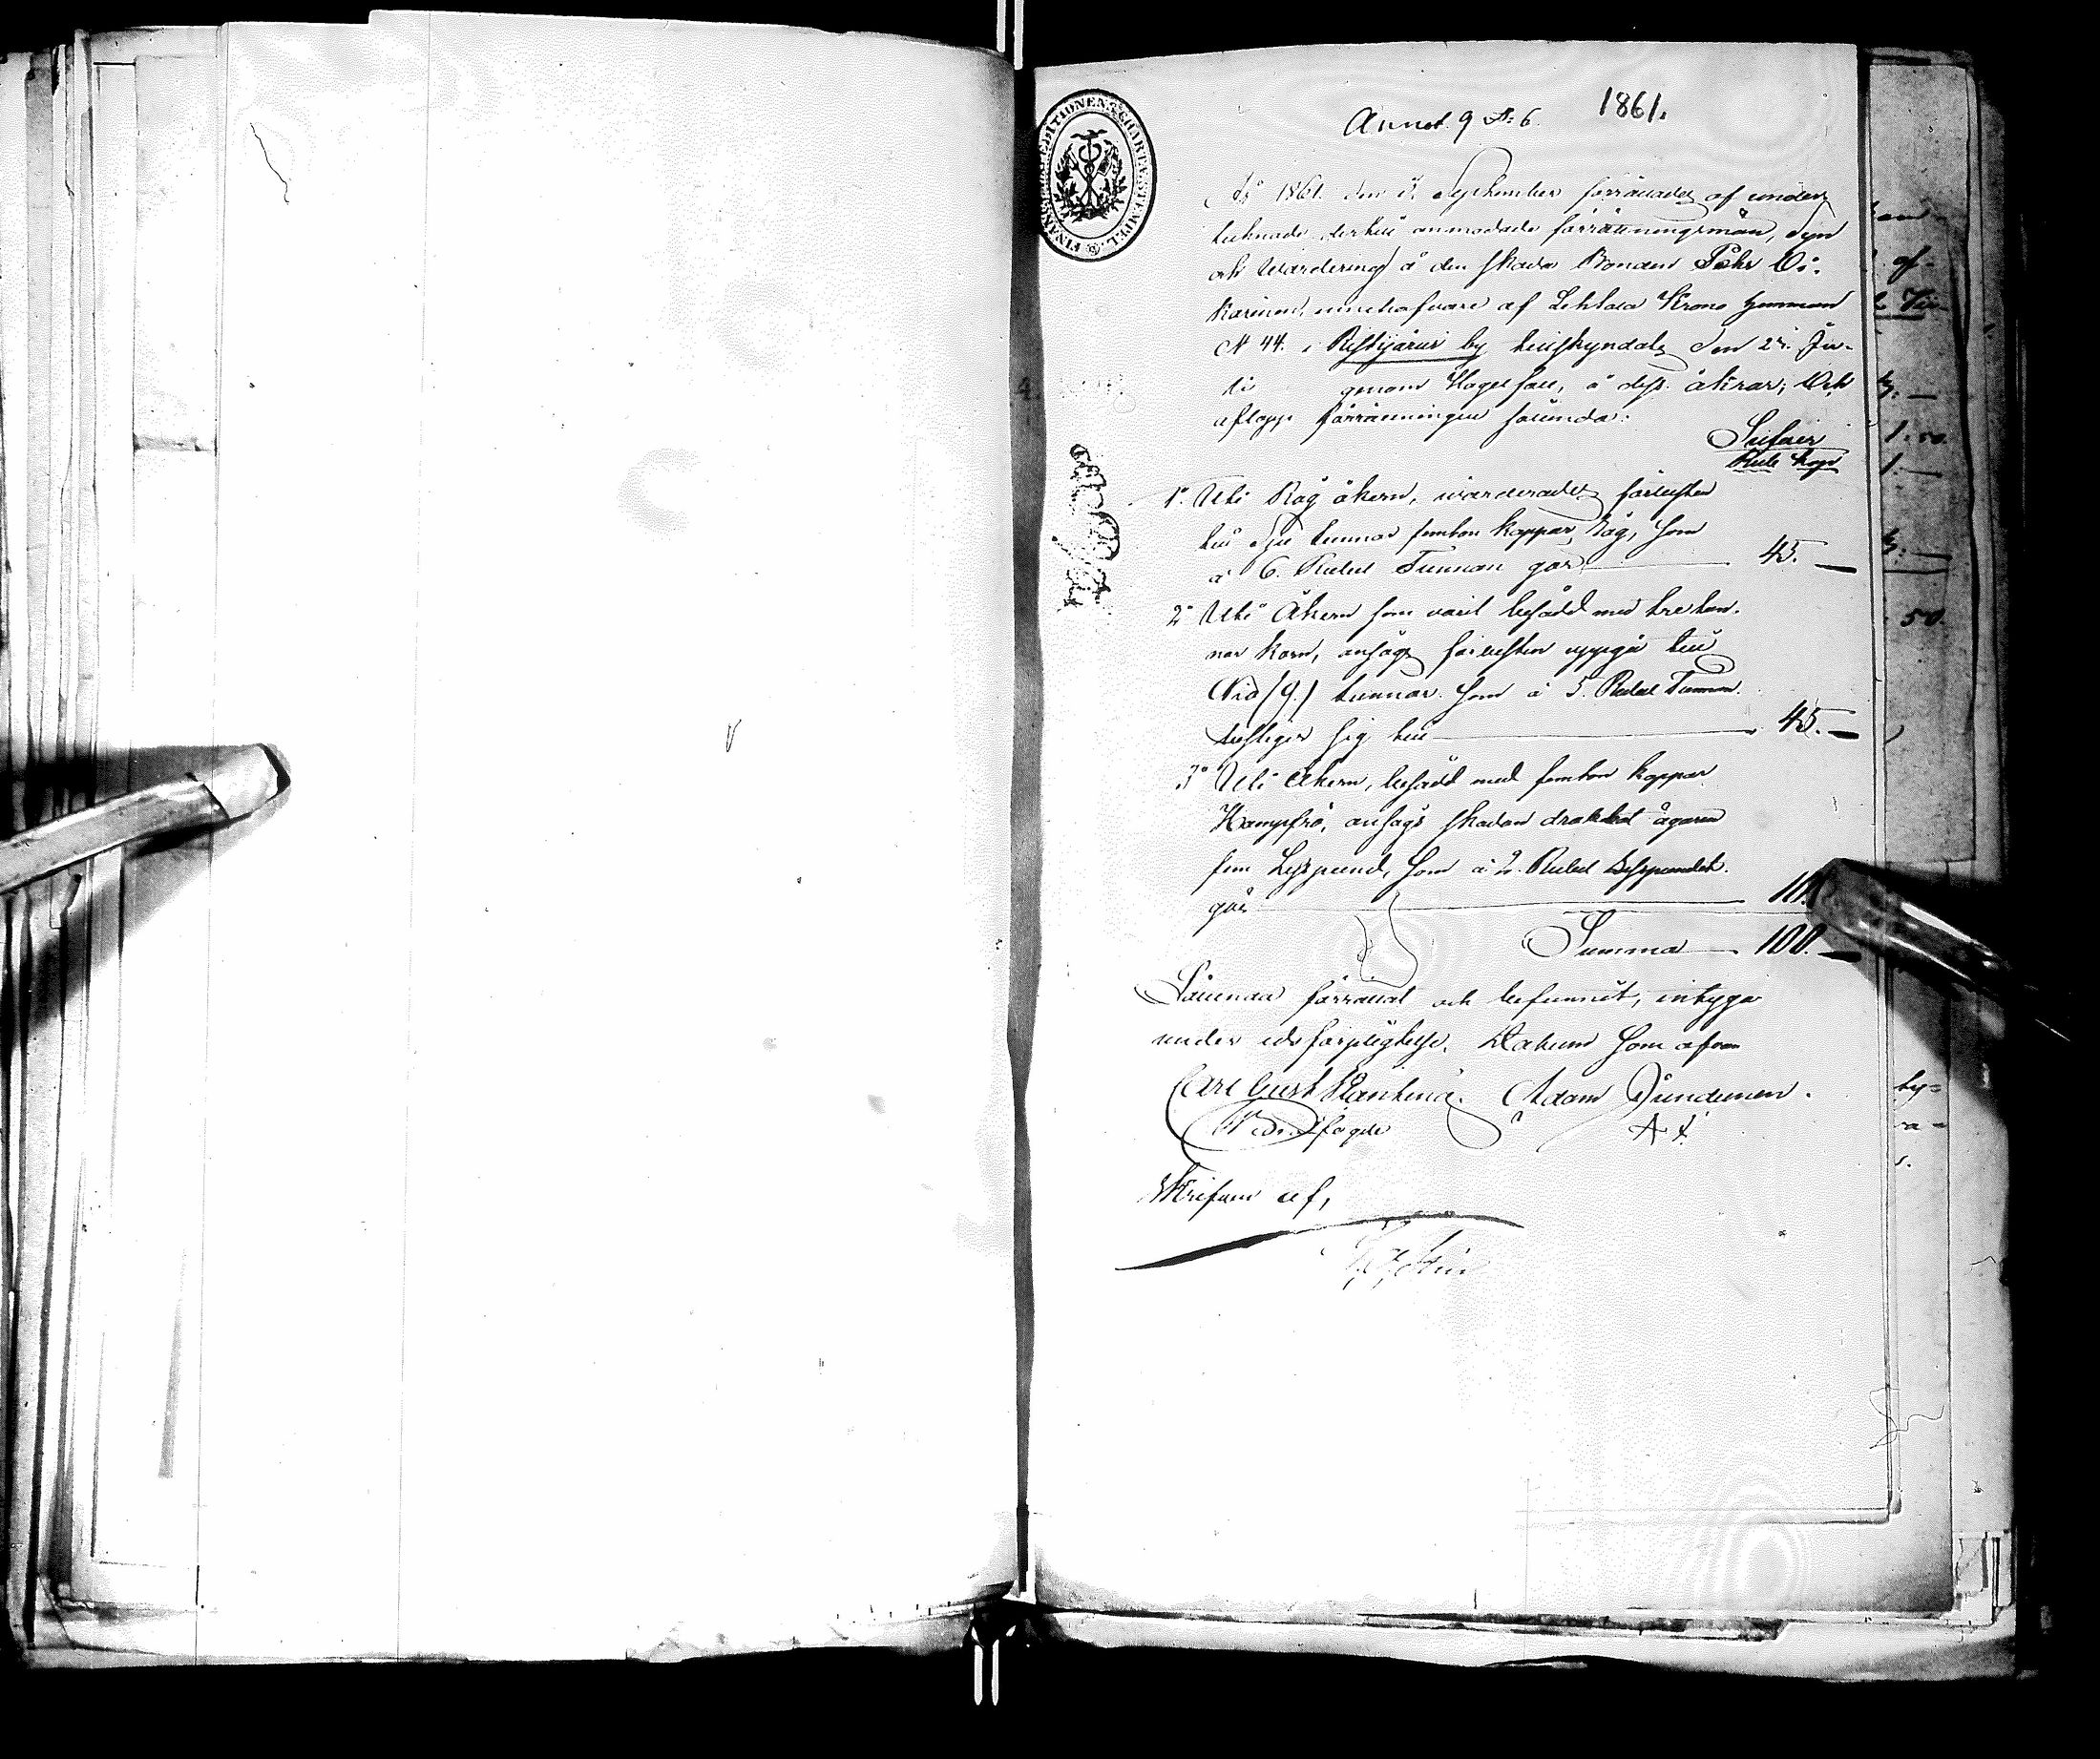 Annot. 9 §: 6. 1861.
FINANS EXPEDITIONENS CHARTÆ STEMPEL
År 1861. den 3. September förrättades af under-
tecknade dertill anmodade förrättningsmän, syn
och wärdering å den skada Bonden Pehr
innehafvare af Krono hemman
N 44. i Ristijärvi by tillskyndats den 28. Ju-
li genom Hagel fall, å dess åkrar; Och
aflopp förrättningen sålunda:
Silfver
Rub. Kop.
1° Uti Råg åkern, wärderades förlusten
till sju tunnor femton kappar Råg, som
a 6. Rubel Tunnan gör 45. —
2° Uti Åkern som varit besådd med tre tun-
nor korn, ansågs förlusten uppgå till
Nio (9.) tunnor som a 5. Rubel Tunnan
bestiger sig till 45. —
3° Uti Åkern, besådd med femton kappar
Hampfrö, ansågs skadan drabbat ägaren
fem Lispund, som a 2. Rubel Lispundet
gör 10.
Summa 100. —
Sålunda förrättat och befunnit, intyga
under eds förpligtelse. Datum som ofvan
Carl Gust. Adam
fogde
Skrifven af,